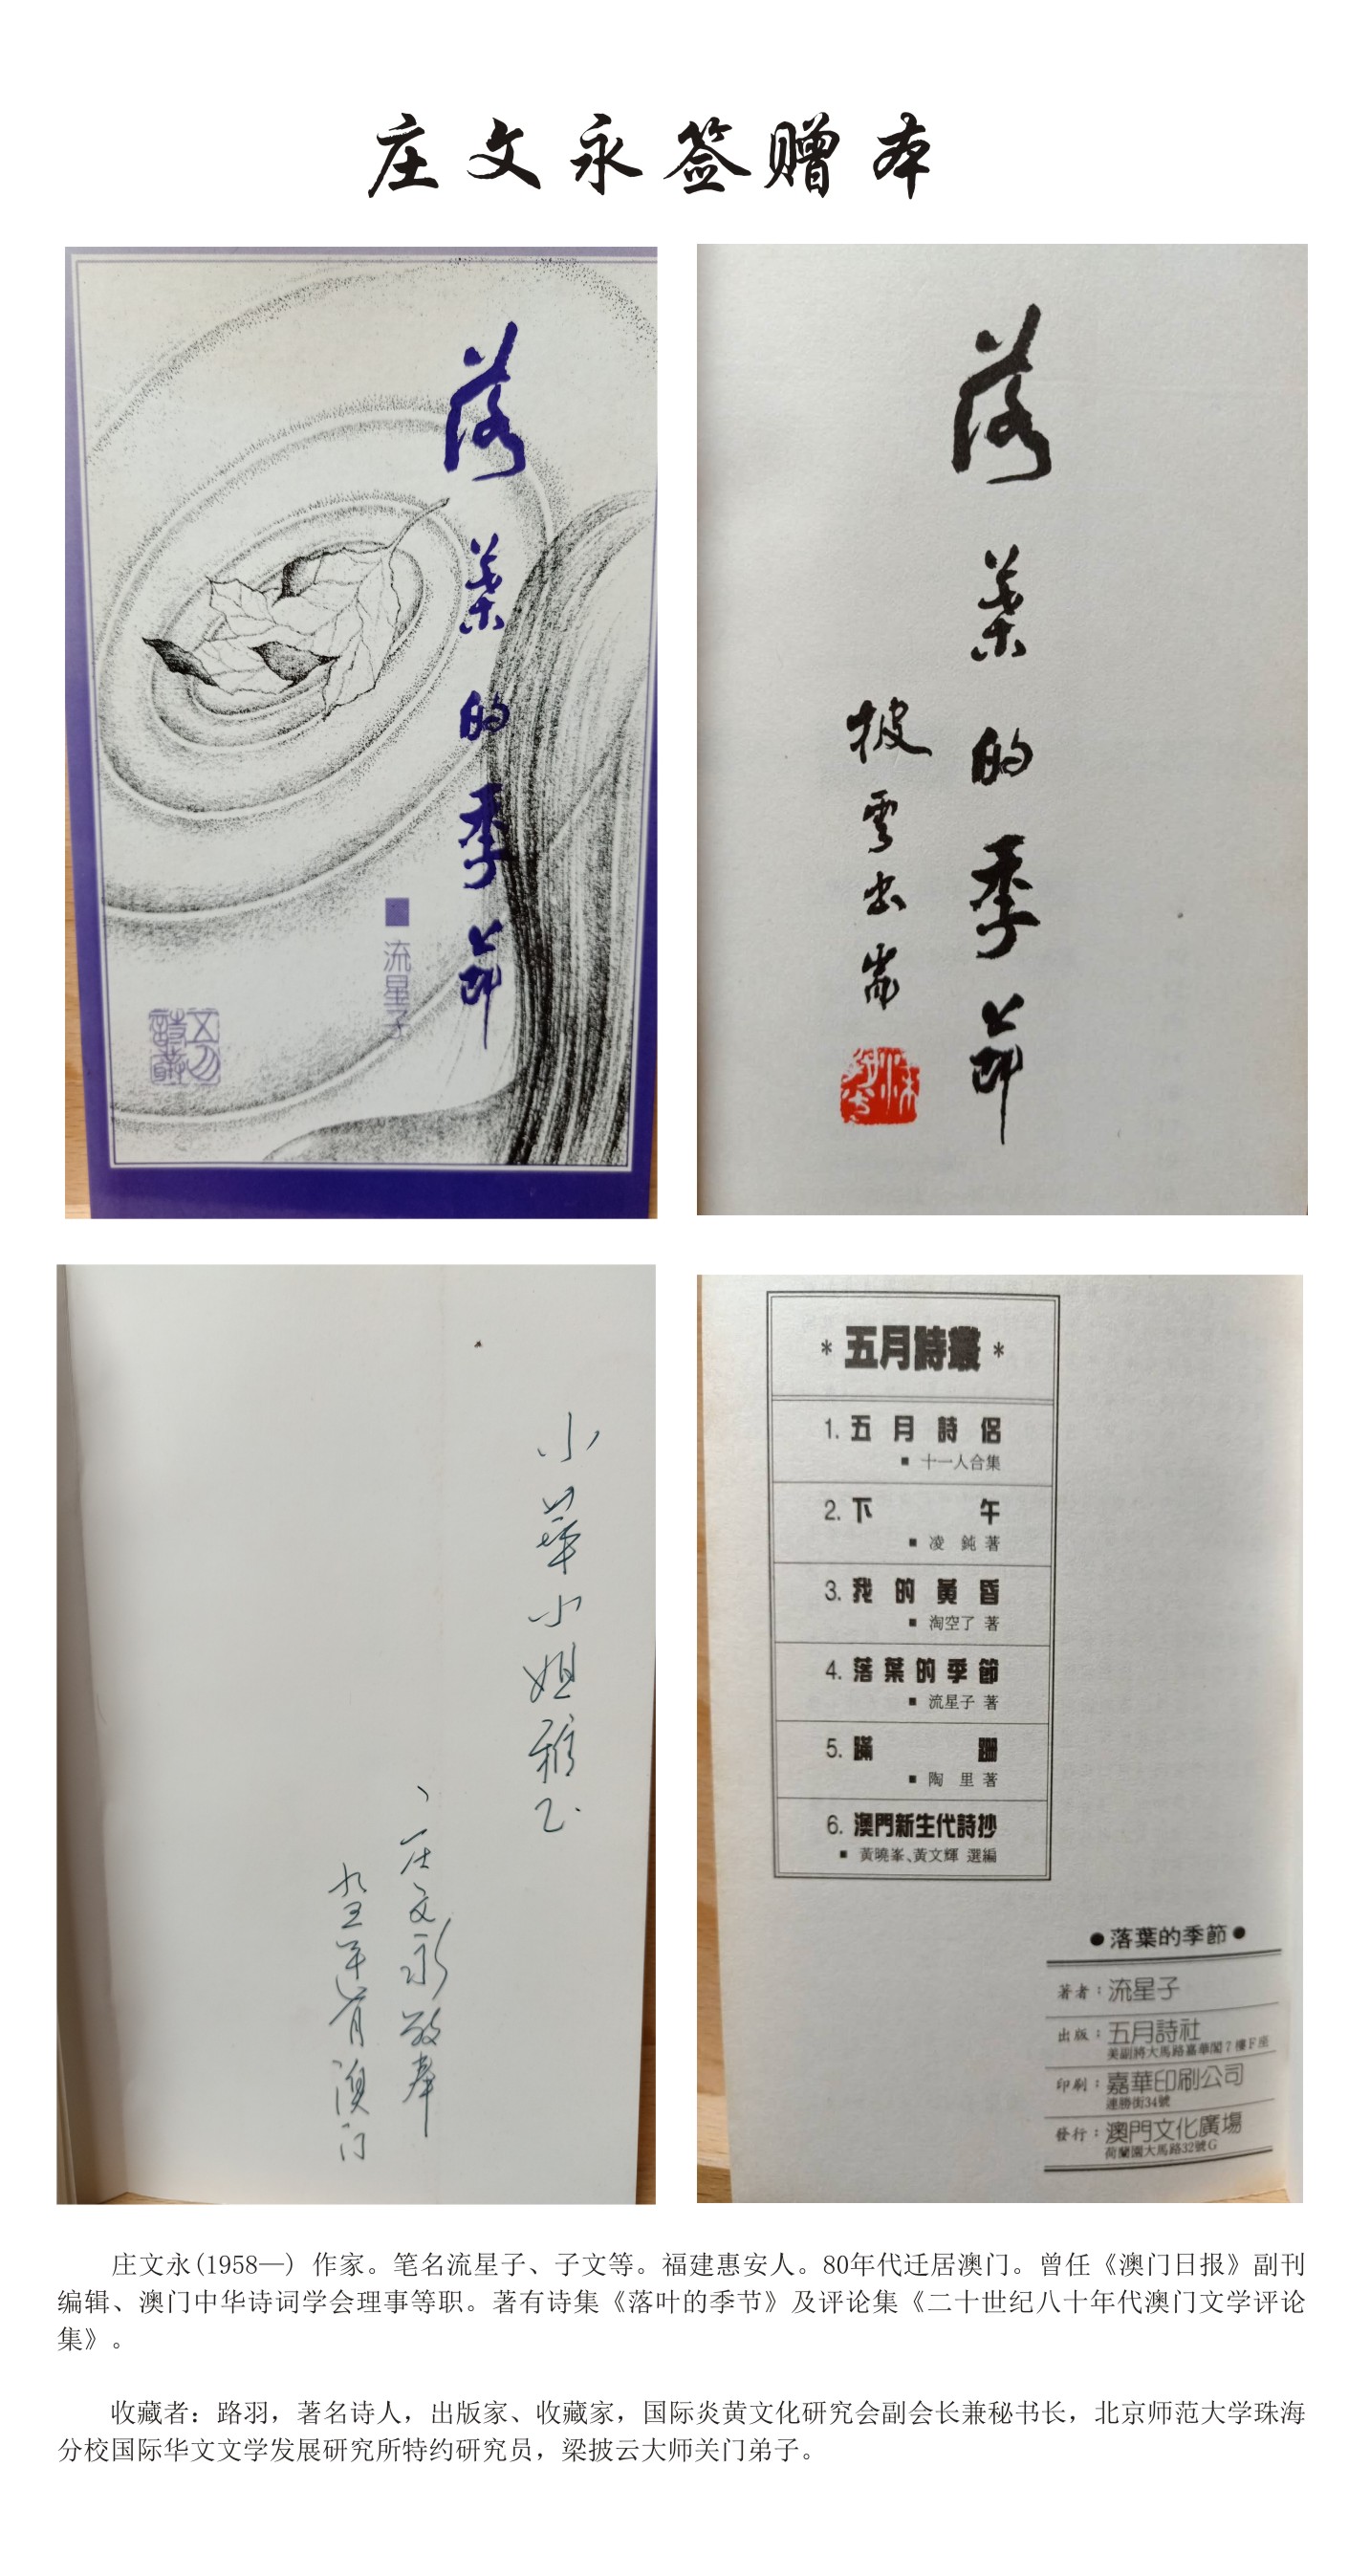 庄文永签赠本
落葉的季節
■流星子
五月
詩叢
落葉的季節
披雲出岩
小華小姐雅正
庄文永敬奉
澳门
*五月詩叢*
1. 五月詩侶
■ 十一人合集
2. 下午
■ 凌鈍 著
3. 我的黃昏
■ 淘空了 著
4. 落葉的季節
■ 流星子 著
5. 蹣跚
■ 陶里 著
6. 澳門新生代詩抄
■ 黃曉峯、黃文輝 選編
●落葉的季節●
著者：流星子
出版：五月詩社
美副將大馬路嘉華閣7樓F座
印刷：嘉華印刷公司
連勝街34號
發行：澳門文化廣場
荷蘭園大馬路32號G
庄文永(1958—) 作家。笔名流星子、子文等。福建惠安人。80年代迁居澳门。曾任《澳门日报》副刊
编辑、澳门中华诗词学会理事等职。著有诗集《落叶的季节》及评论集《二十世纪八十年代澳门文学评论
集》。
收藏者：路羽，著名诗人，出版家、收藏家，国际炎黄文化研究会副会长兼秘书长，北京师范大学珠海
分校国际华文文学发展研究所特约研究员，梁披云大师关门弟子。